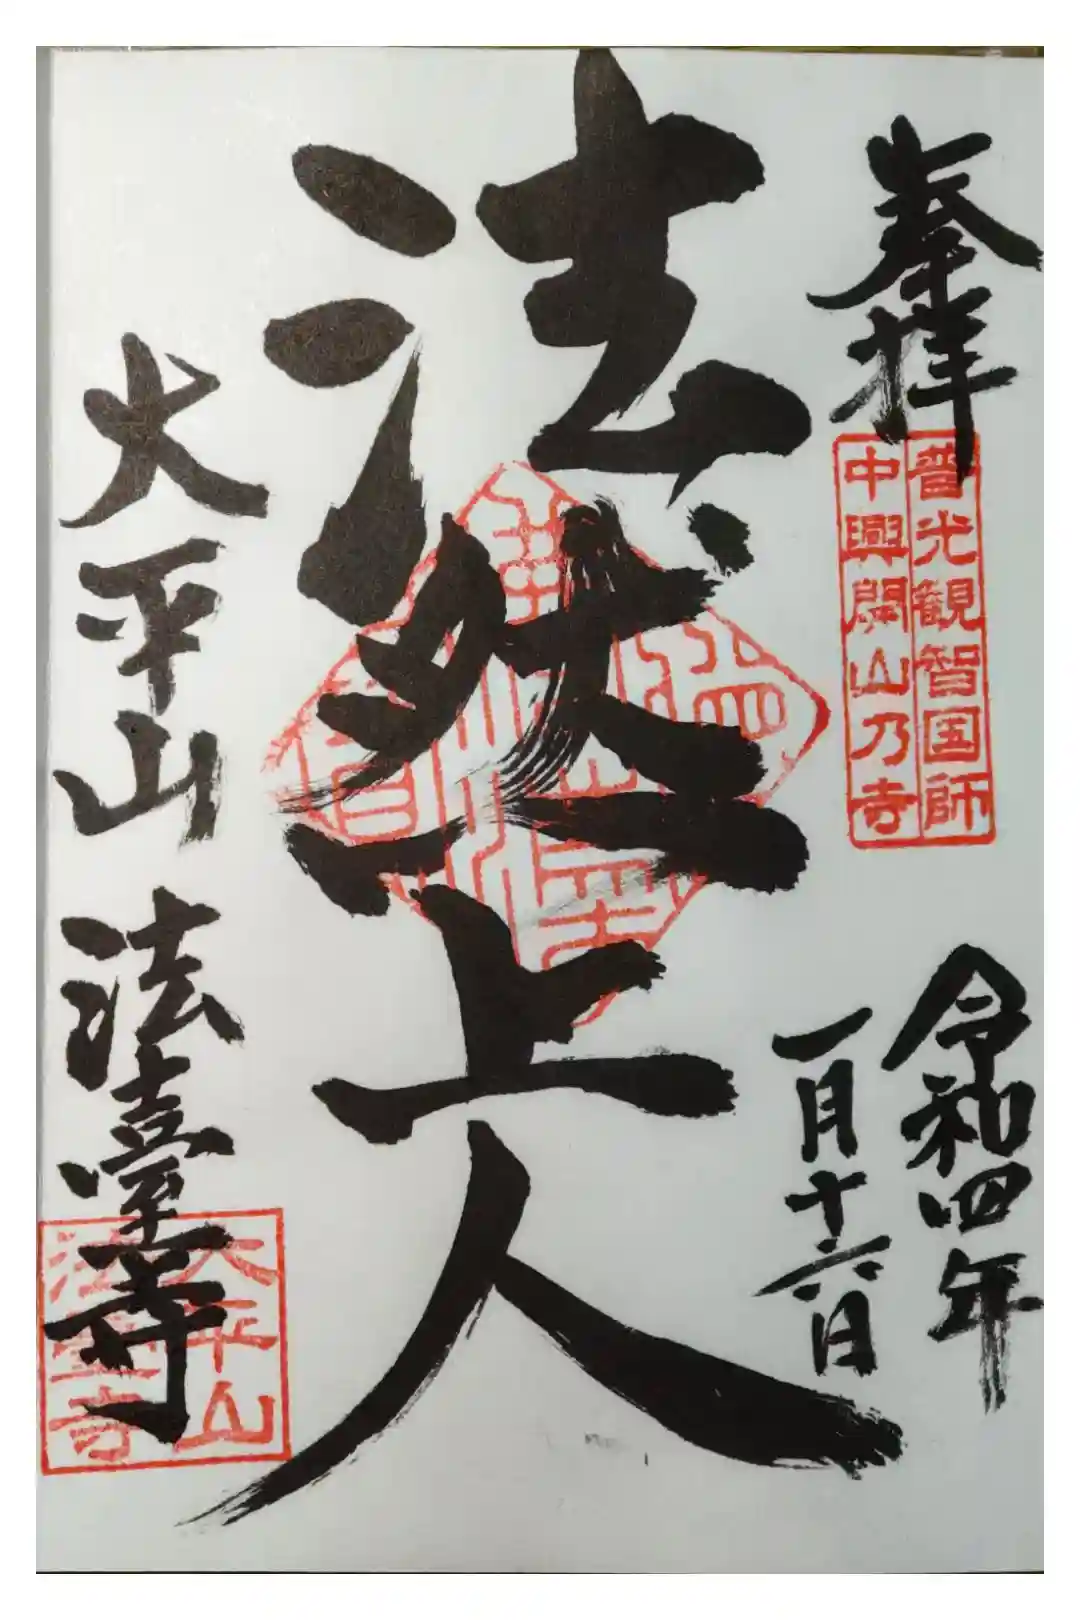 奉拝
普光観智国師
中興開山乃寺
令和四年
一月十六日
法然上人
大平山
法臺寺
大平山
法臺寺